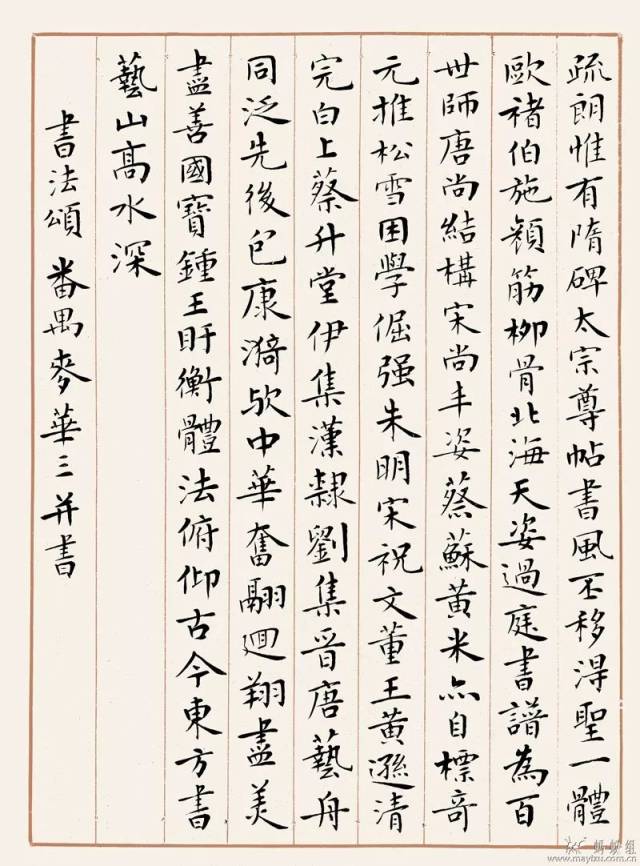 疏朗惟有隋碑太宗尊帖書風丕移得聖一體
歐褚伯施顏筋柳骨北海天姿過庭書譜為百
世師唐尚結構宋尚丰姿蔡蘇黃米亦自標奇
元推松雪困學倔强朱明宋祝文董王黃遜清
完白上蔡升堂伊集漢隸劉集晉唐藝舟
同泛先後包康漪歟中華奮翮迴翔盡美
盡善國寶鍾王盱衡體法俯仰古今東方書
藝山高水深
書法頌 番禺麥華三并書
蚂蚁组